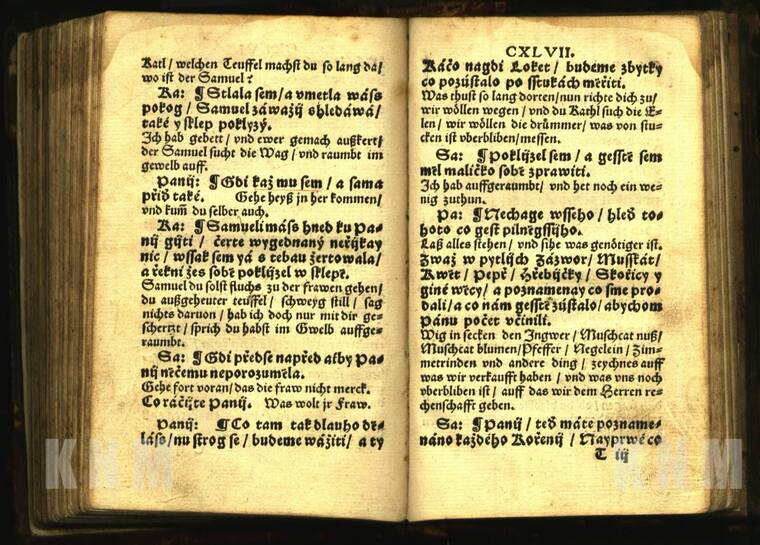 Katl / welchen Teuffel machst du so lang da /
wo ist der Samuel?
Ka: ¶ Stlala sem / a vmetla wáss
pokog / Samuel záwažij ohledáwá /
také y sklep poklyzý.
Ich hab gebett / vnd ewer gemach außkert /
der Samuel sucht die Wag / vnd raumbt im
gewelb auff.
Panij: ¶ Gdi kaž mu sem / a sama
přiď také. Gehe heyß jn her kommen /
vnd kum̃ du selber auch.
Ka: ¶ Samueli máss hned ku pa-
nij gijti / čerte wygednaný neřijkay
nic / wssak sem yá s tebau žertowala /
a řekni žes sobě poklijzel w sklepě.
Samuel du solst fluchs zu der frawen gehen /
du außgeheuter teuffel / schweyg still / sag
nichts daruon / hab ich doch nur mit dir ge-
schertzt / sprich du habst im Gwelb auffge-
raumbt.
Sa: ¶ Gdi předse napřed aťby pa-
nij něčemu neporozuměla.
Gehe fort voran / das die fraw nicht merck.
Co ráčijte Panij. Was wolt jr Fraw.
Panij: ¶ Co tam tak dlauho dě-
láss / nu strog se / budeme wážiti / a ty
CXLVII.
Káčo nagdi Loket / budeme zbytky
co pozůstalo po sstukách měřiti.
Was thust so lang dorten / nun richte dich zu /
wir wöllen wegen / vnd du Kathl such die E-
len / wir wöllen die drümmer / was von stu-
cken ist vberbliben / messen.
Sa: ¶ Poklijzel sem / a gesstě sem
měl maličko sobě zprawiti.
Ich hab auffgeraumbt / vnd het noch ein we-
nig zuthun.
Pa: ¶ Nechage wsseho / hleď to-
hoto co gest pilněgssijho.
Laß alles stehen / vnd sihe was genötiger ist.
Zwaž w pytlijch Zázwor / Musskát /
Kwět / Pepř / Hřebijčky / Skořicy y
giné wěcy / a poznamenay co sme pro-
dali / a co nám gesstě zůstalo / abychom
Pánu počet včinili.
Wig in secken den Ingwer / Muschcat nuß /
Muschcat blumen / Pfeffer / Negelein / Zim-
metrinden vnd andere ding / zeychnes auff
was wir verkaufft haben / vnd was vns noch
vberbliben ist / auff das wir dem Herren re-
chenschafft geben.
Sa: ¶ Panij / teď máte pozname-
náno každého Kořenij / Nayprwé co
T iij
KNM
KNM